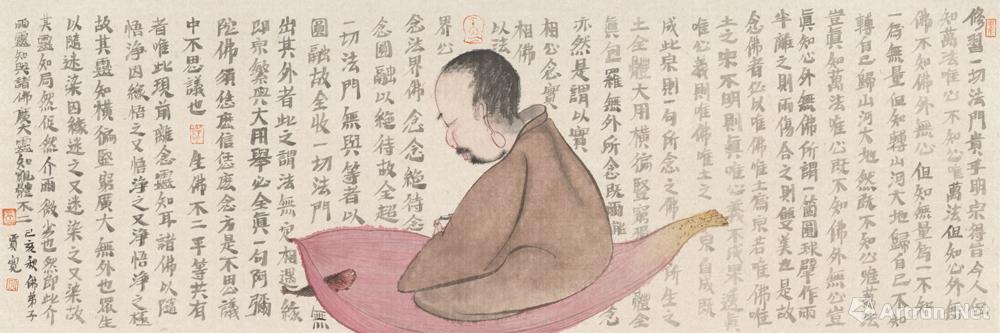 修習一切法門貴乎明宗得旨今人但
知萬法唯心不知心唯萬法但知心外無
佛不知佛外無心但知無量為一不知
一為無量但知轉山河大地歸自己不知
轉自己歸山河大地然既不知心唯萬法
豈真知萬法唯心既不知佛外無心豈
真知心外無佛所謂一箇圓毬擘作兩
半離之則兩傷合之則雙美也是故
念佛者必以唯佛唯土為宗若唯佛唯
土之宗不明則真唯心義不成透真
唯心義則唯佛唯土之宗自成既
成此宗則一句所念之佛所生之
土全體大用橫徧豎窮體全
真包羅無外所念既爾能念
亦然是謂以實
相心念實
相佛
以法
界心
念法界佛念念絕待念
念圓融以絕待故全超
一切法門無與等者以
圓融故全收一切法門無
出其外者此之謂法無定相遇緣
即宗繁興大用舉必全真一句阿彌
陀佛須恁麼信恁麼念方是不思議
中不思議也 生佛不二平等共有
者唯此現前離念靈知耳諸佛以隨
悟淨因緣悟之又悟淨之又淨悟淨之極
故其靈知橫徧豎窮廣大無外也眾生
以隨迷染因緣迷之又迷染之又染故
其靈知局然促然介爾微劣也然即此介
爾靈知與諸佛廣大靈知覿體不二 己亥秋佛弟子
賈寬
Artron.Net